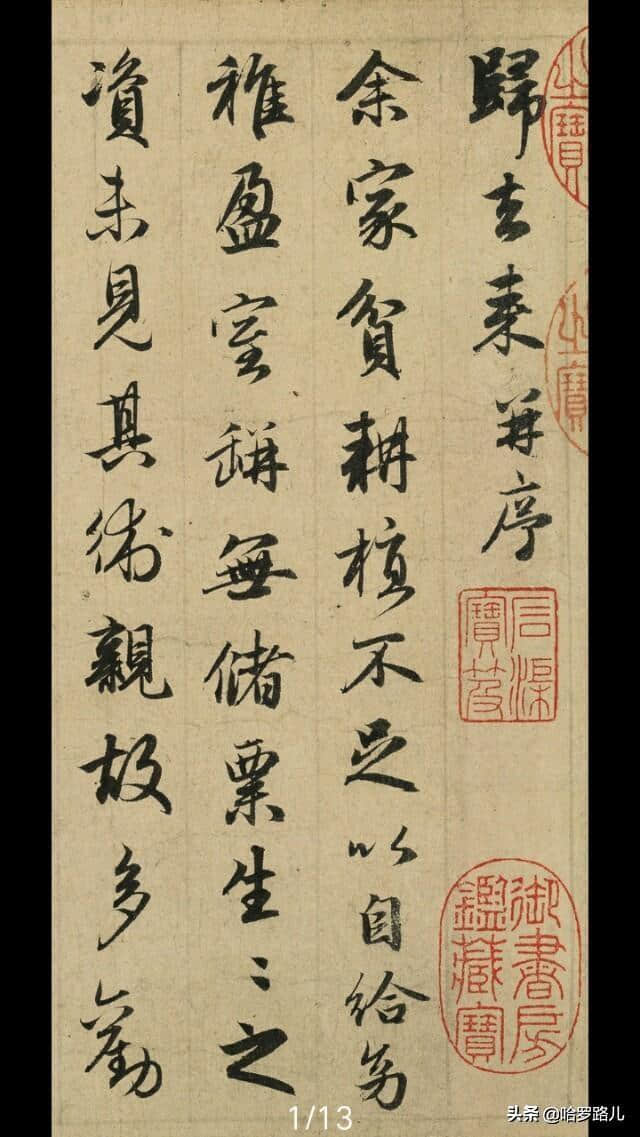 之寶
之寶
歸去来并序
石渠寶笈
御書房鑑藏寶
余家貧耕植不足以自給幼
稚盈室缾無儲粟生〻之
資未見其術親故多勸
1/13
头条 @哈罗路儿